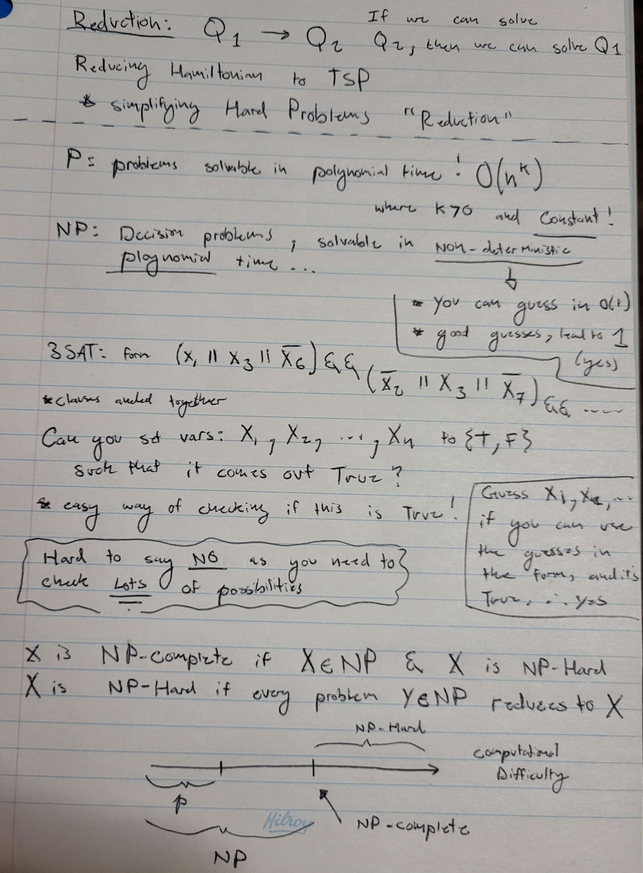 Reduction: Q1 → Q2 If we can solve
Q2, then we can solve Q1
Reducing Hamiltonian to TSP
* simplifying Hard Problems "Reduction"
P: problems solvable in polynomial time! O(n^k)
where k>0 and Constant!
NP: Decision problems, solvable in Non-deterministic
ploynomial time...
* you can guess in O(1)
* good guesses, lead to 1
(yes)
3SAT: form (X₁ || X₃ || X̅₆) && (X̅₂ || X₃ || X̅₇) && .....
*clauses anded together
Can you set vars: X₁, X₂, ..., Xn to {T, F}
such that it comes out True?
* easy way of checking if this is True!
Guess X₁, X₂, ...
if you can use
the guesses in
the form, and it's
True, ∴ yes
Hard to say NO as you need to
check Lots of possibilities
X is NP-complete if X∈NP & X is NP-Hard
X is NP-Hard if every problem Y∈NP reduces to X
NP-Hard
computational
Difficulty
P
Hilroy
NP-complete
NP